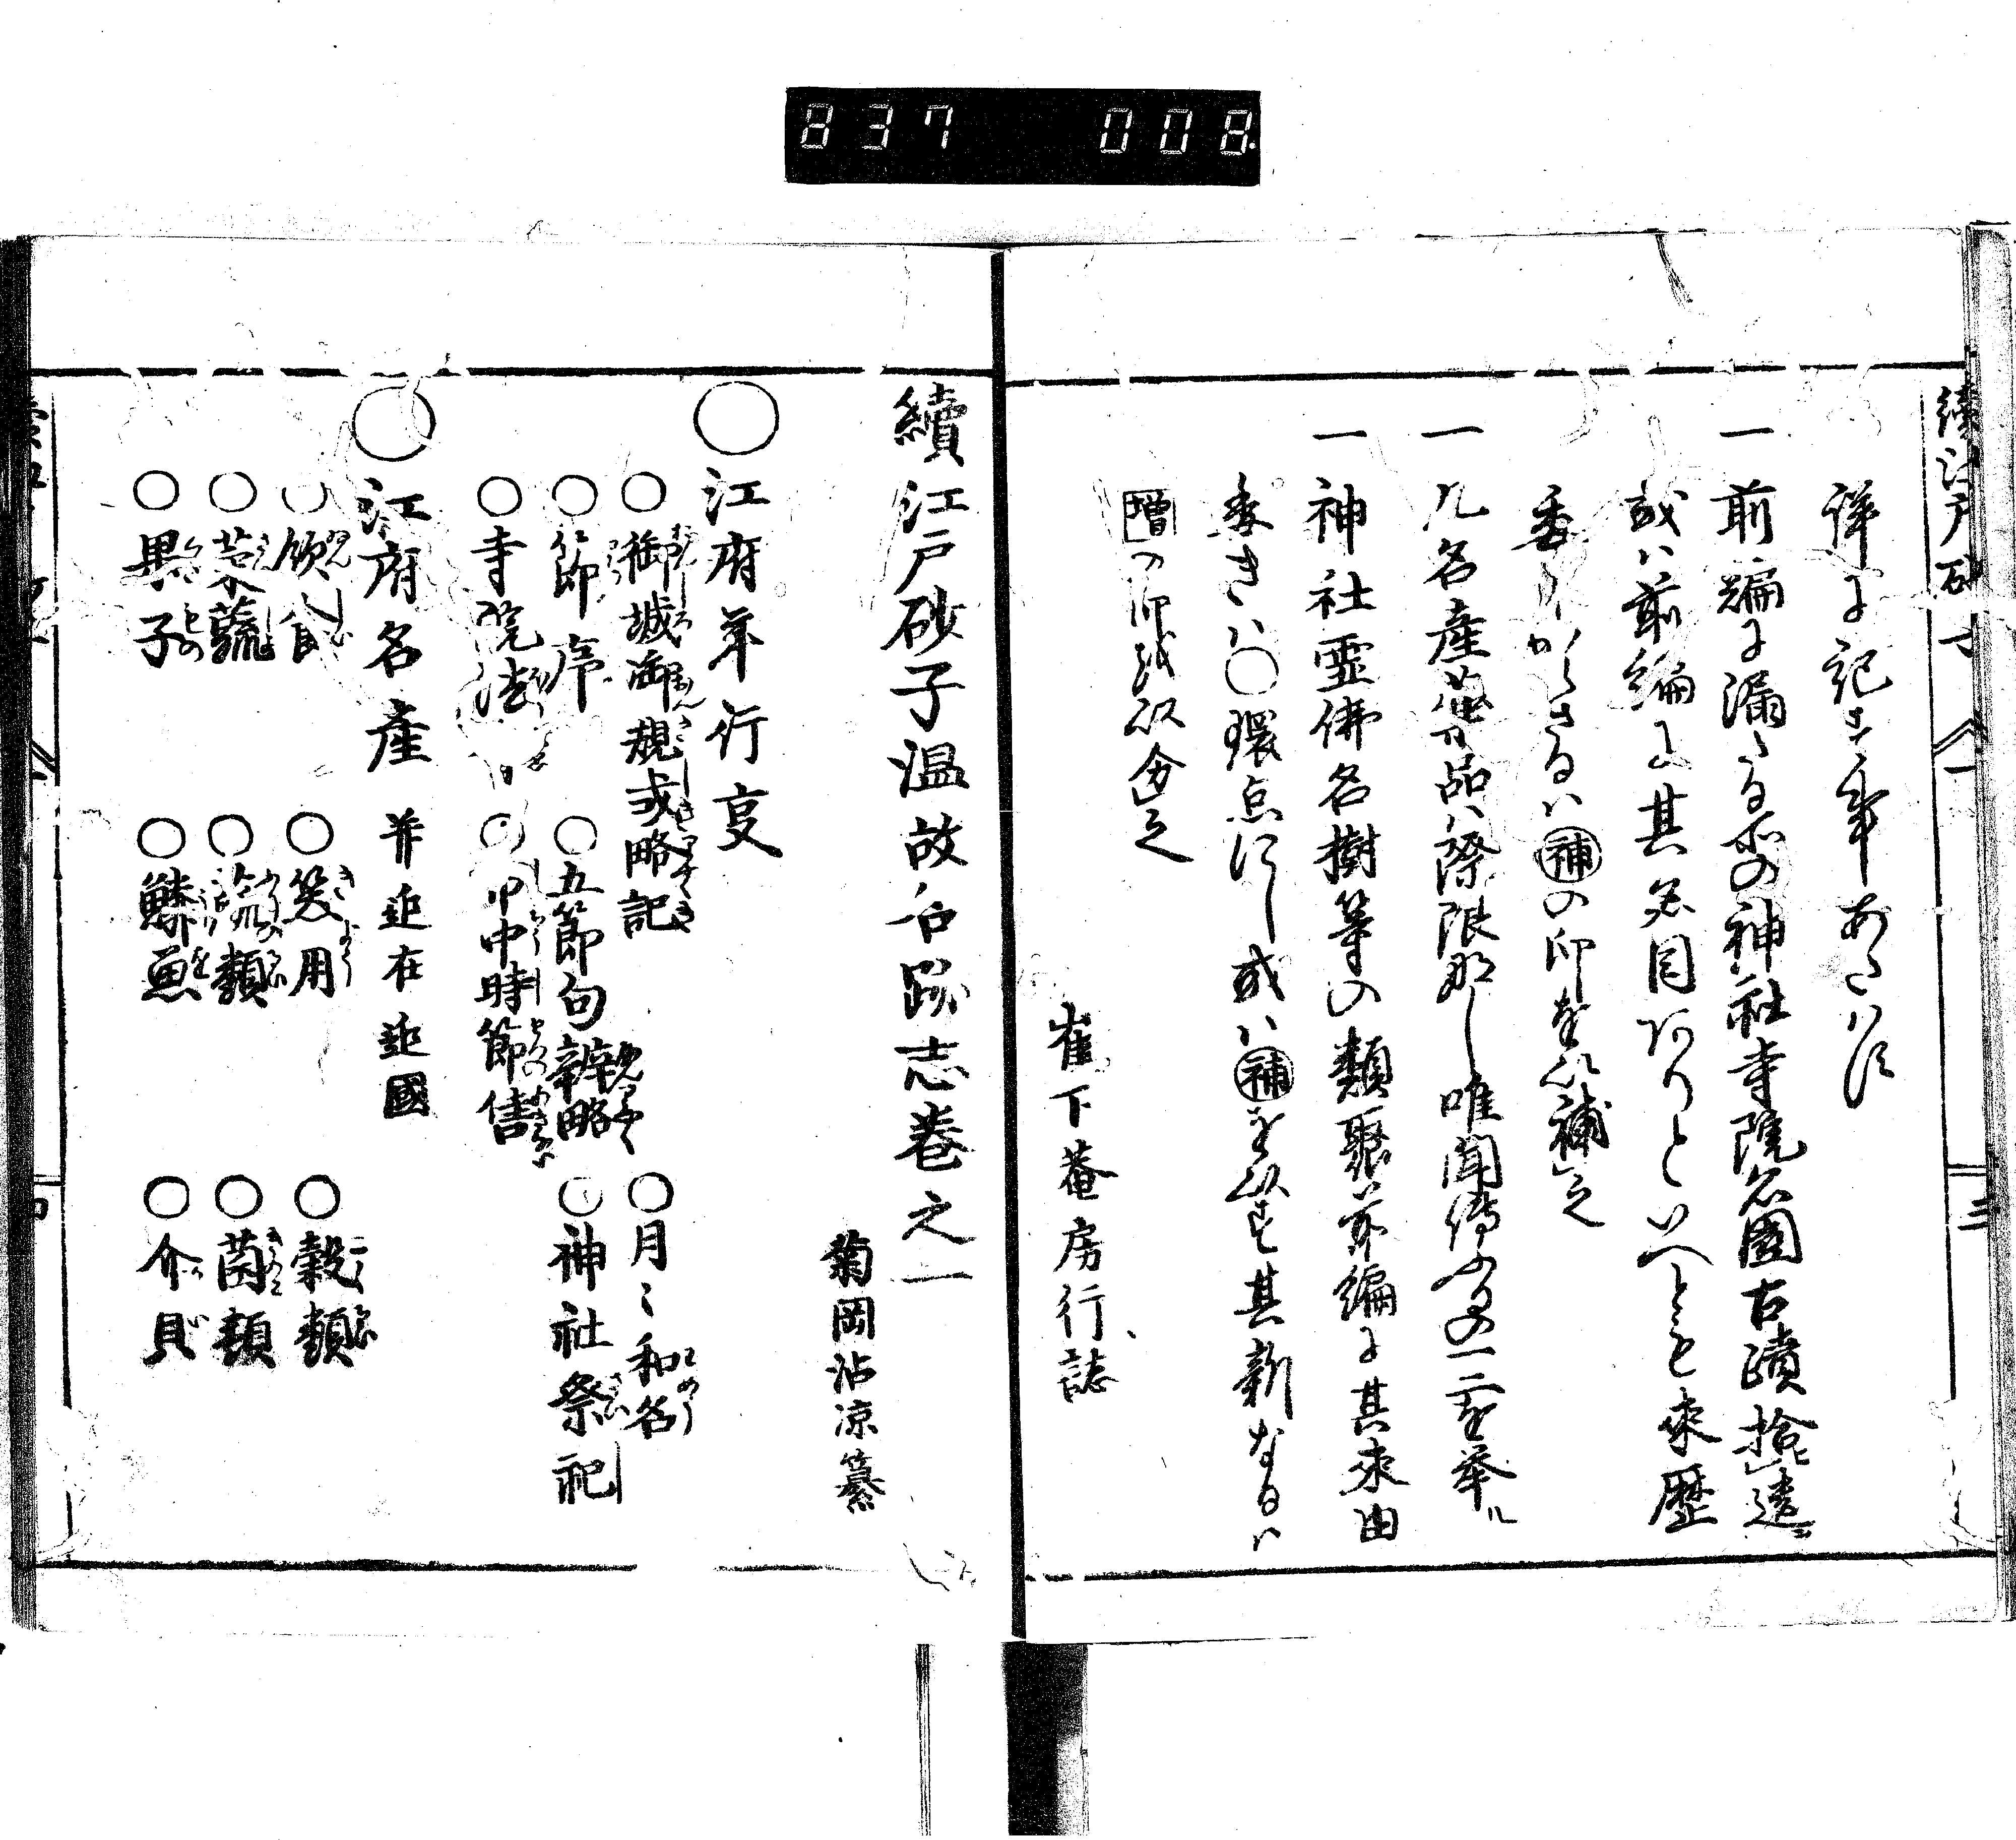 837 008
詳に記す事あたはす
一前編に漏たる所の神社寺院名園古蹟撿遺
或ハ前編に其名目ありといへとも来歴
委しからさるハ補の印を以補之
一凡名産の品ハ際限那し唯聞傳ふるの一二を挙ル
一神社霊佛名樹等の類聚前編に其来由
委きハ○環点にし或ハ補を以す其新なるハ
増の印を以分之
崔下菴房行誌
續江戸砂子温故名跡志巻之一
菊岡沾凉纂
○江府年行叓
○御城御規式略記 ○月〻和名
○節序 ○五節句辨略 ○神社祭祀
○寺院法 ○中時節
○江府名産 并近在近國
○飲食 ○笈用 ○穀類
○菜蔬 ○類 ○菌類
○果子 ○鱗魚 ○介貝